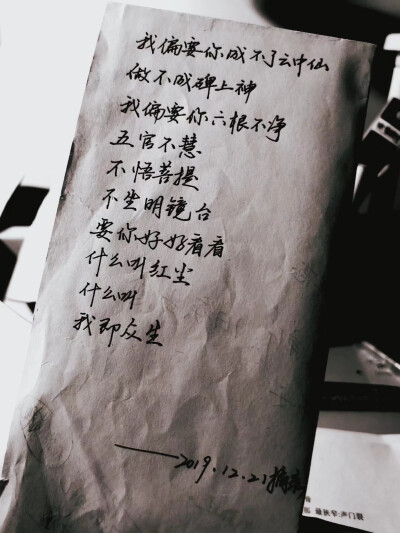 我偏要你成不了云中仙
做不成碑上神
我偏要你六根不净
五官不慧
不悟菩提
不坐明镜台
要你好好看看
什么叫红尘
什么叫
我即众生
——2019.12.21摘